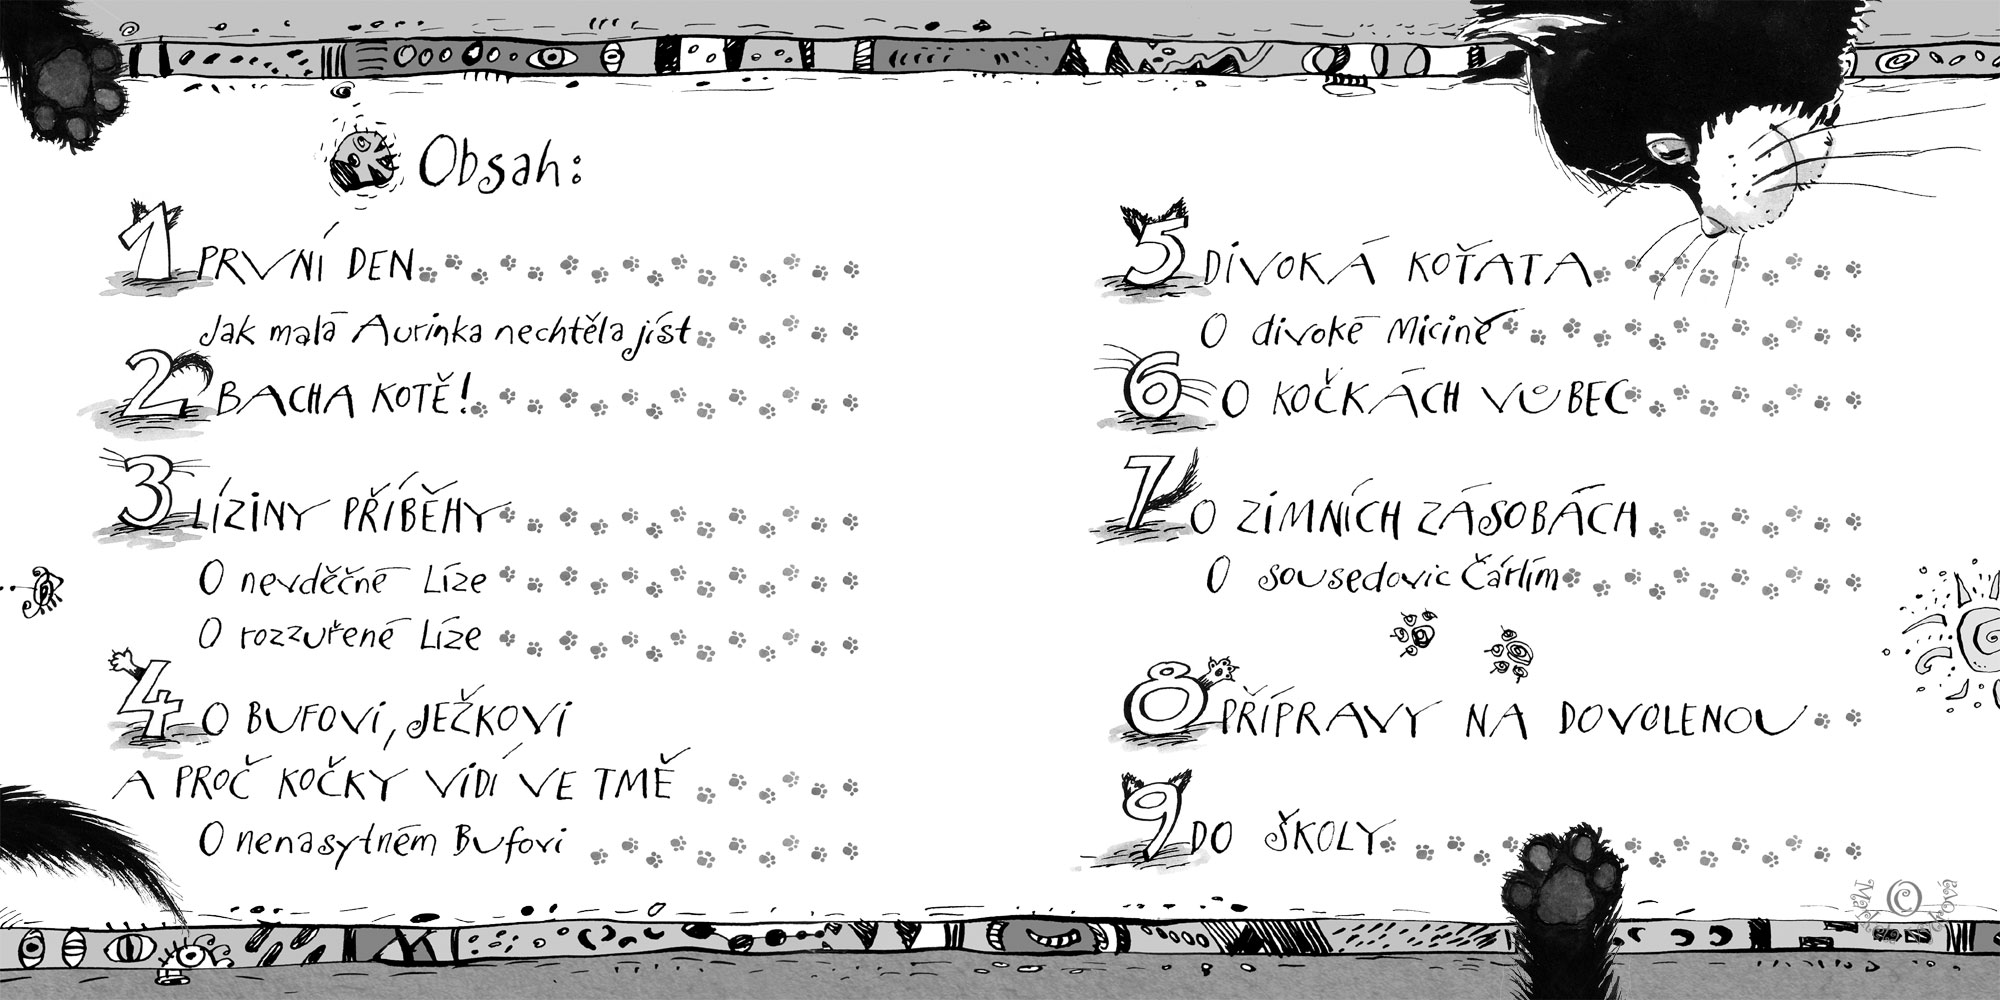 Obsah:
1 PRVNÍ DEN
Jak malá Aurinka nechtěla jíst
2 BACHA KOTĚ!
3 LÍZINY PŘÍBĚHY
O nevděčné Líze
O rozzuřené Líze
4 O BUFOVI, JEŽKOVI
A PROČ KOČKY VIDÍ VE TMĚ
O nenasytném Bufovi
5 DIVOKÁ KOŤATA
O divoké Micině
6 O KOČKÁCH VŮBEC
7 O ZIMNÍCH ZÁSOBÁCH
O sousedovic Čárlím
8 PŘÍPRAVY NA DOVOLENOU
9 DO ŠKOLY
©